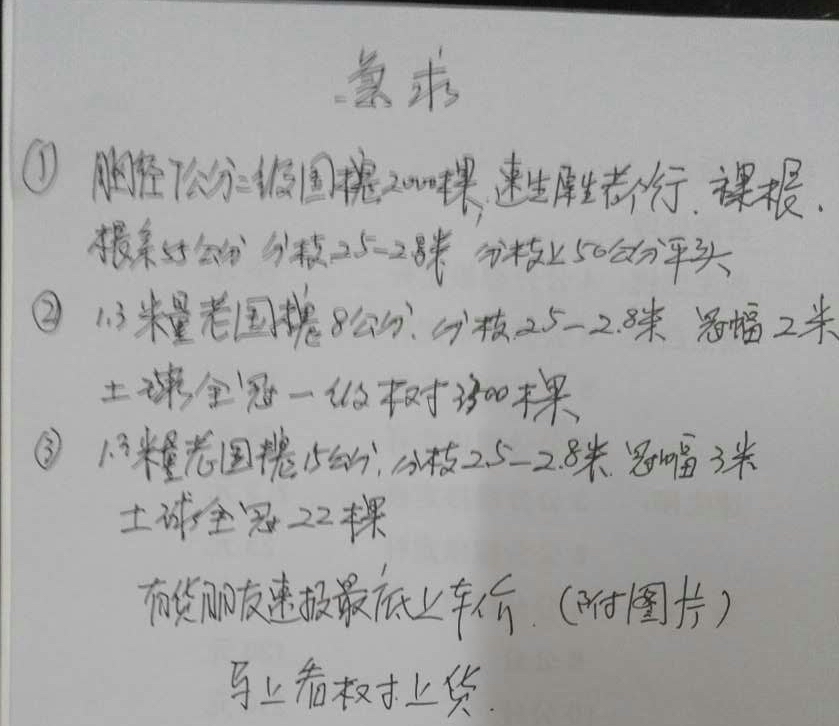 急求
① 胸径7公分二级国槐2000棵,速生原生都行、裸根、
根系55公分 分枝2.5-2.8米 分枝上50公分平头
② 1.3米量老国槐8公分、分枝2.5-2.8米 冠幅2米
土球全冠一级树3500棵
③ 1.3米量老国槐15公分、分枝2.5-2.8米 冠幅3米
土球全冠22棵
有货朋友速报最底上车价.(附图片)
马上看树上货.